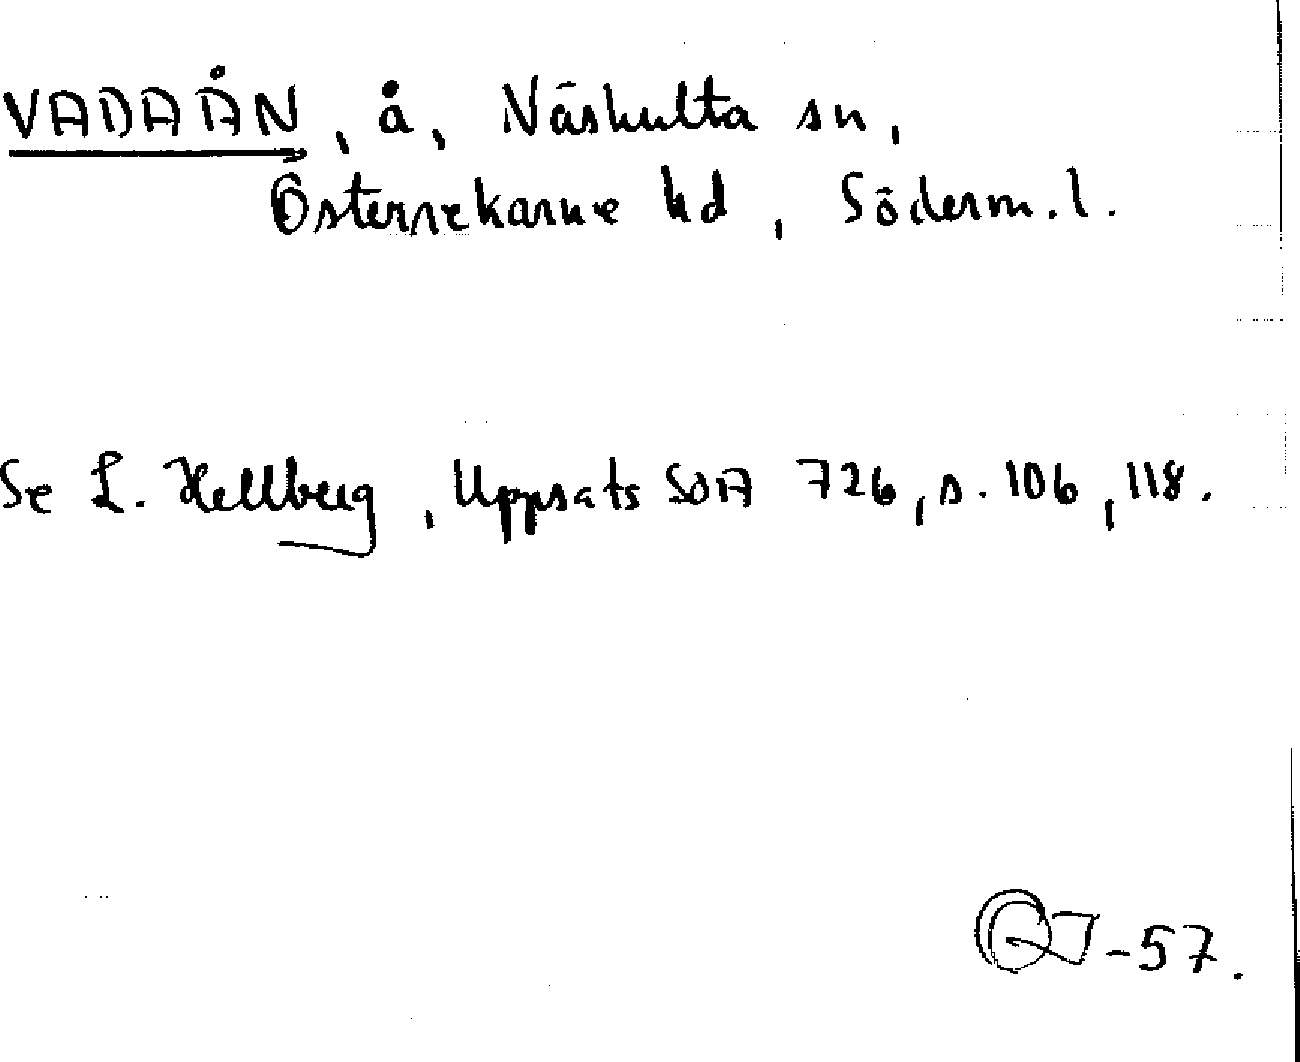 VADAÅN, å, Näshulta sn,
Österrekarne hd, Söderm. l.
Se L. Hellberg, Uppsats SOA 726, s. 106, 118.
-57.